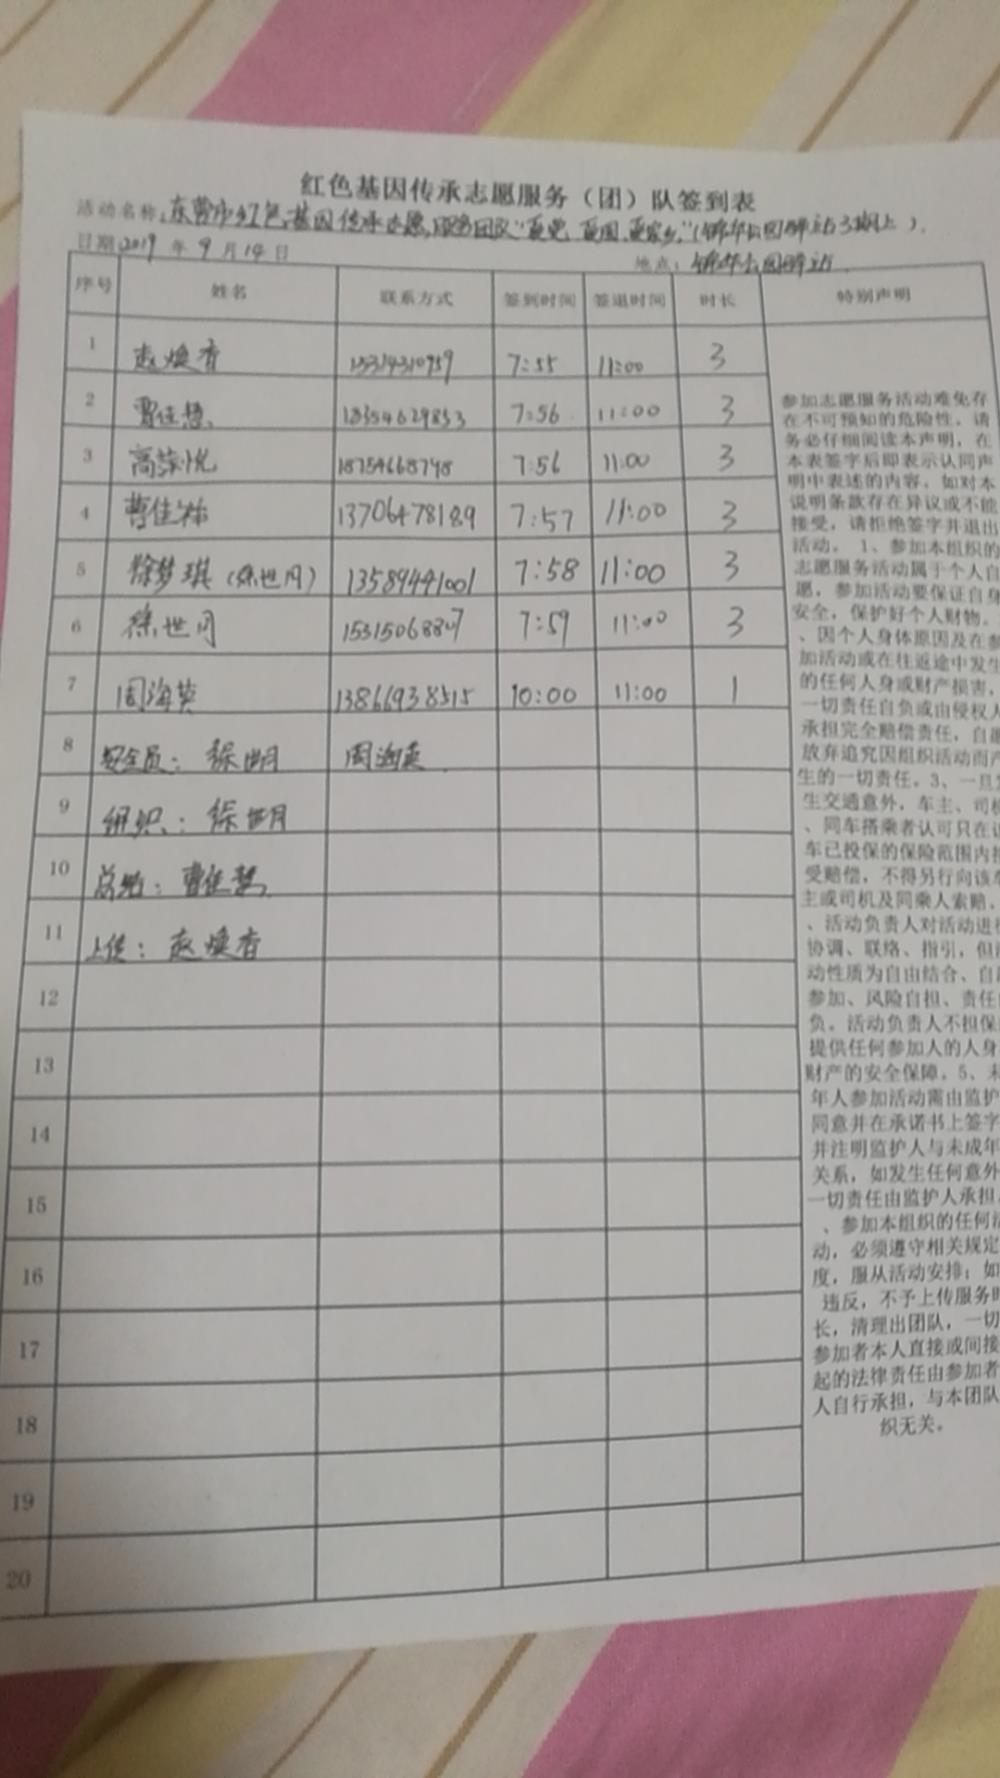 红色基因传承志愿服务（团）队签到表
活动名称：东营市红色基因传承志愿服务团队"爱党、爱国、爱家乡"(锦华公园驿站3期上).
日期2019年9月14日 地点：锦华公园驿站
序号 姓名 联系方式 签到时间 签退时间 时长 特别声明
1 赵焕香 15314310959 7:55 11:00 3
2 曹佳慧 18354629853 7:56 11:00 3
3 高悦 18754668748 7:56 11:00 3
4 曹佳 13706478189 7:57 11:00 3
5 徐梦琪（徐世月） 13589441001 7:58 11:00 3
6 徐世月 15315068807 7:59 11:00 3
7 周海英 13866938515 10:00 11:00 1
8 安全员：徐世月 周海英
9 组织：徐世月
10 总结：曹佳慧
11 上传：赵焕香
12
13
14
15
16
17
18
19
20
参加志愿服务活动难免存
在不可预知的危险性，请
务必仔细阅读本声明，在
本表签字后即表示认同声
明中表述的内容，如对本
说明条款存在异议或不能
接受，请拒绝签字并退出
活动。1、参加本组织的
志愿服务活动属于个人自
愿，参加活动要保证自身
安全，保护好个人财物。
、因个人身体原因及在参
加活动或在往返途中发生
的任何人身或财产损害，
一切责任自负或由侵权人
承担完全赔偿责任，自愿
放弃追究因组织活动而产
生的一切责任。3、一旦发
生交通意外，车主、司机
、同车搭乘者认可只在该
车已投保的保险范围内接
受赔偿，不得另行向该车
主或司机及同乘人索赔。
、活动负责人对活动进行
协调、联络、指引，但活
动性质为自由结合、自愿
参加、风险自担、责任自
负。活动负责人不担保
提供任何参加人的人身
财产的安全保障。5、未
年人参加活动需由监护
同意并在承诺书上签字
并注明监护人与未成年
关系，如发生任何意外
一切责任由监护人承担。
、参加本组织的任何活
动，必须遵守相关规定
度，服从活动安排；如
违反，不予上传服务时
长，清理出团队，一切
参加者本人直接或间接
起的法律责任由参加者
人自行承担，与本团队
织无关。